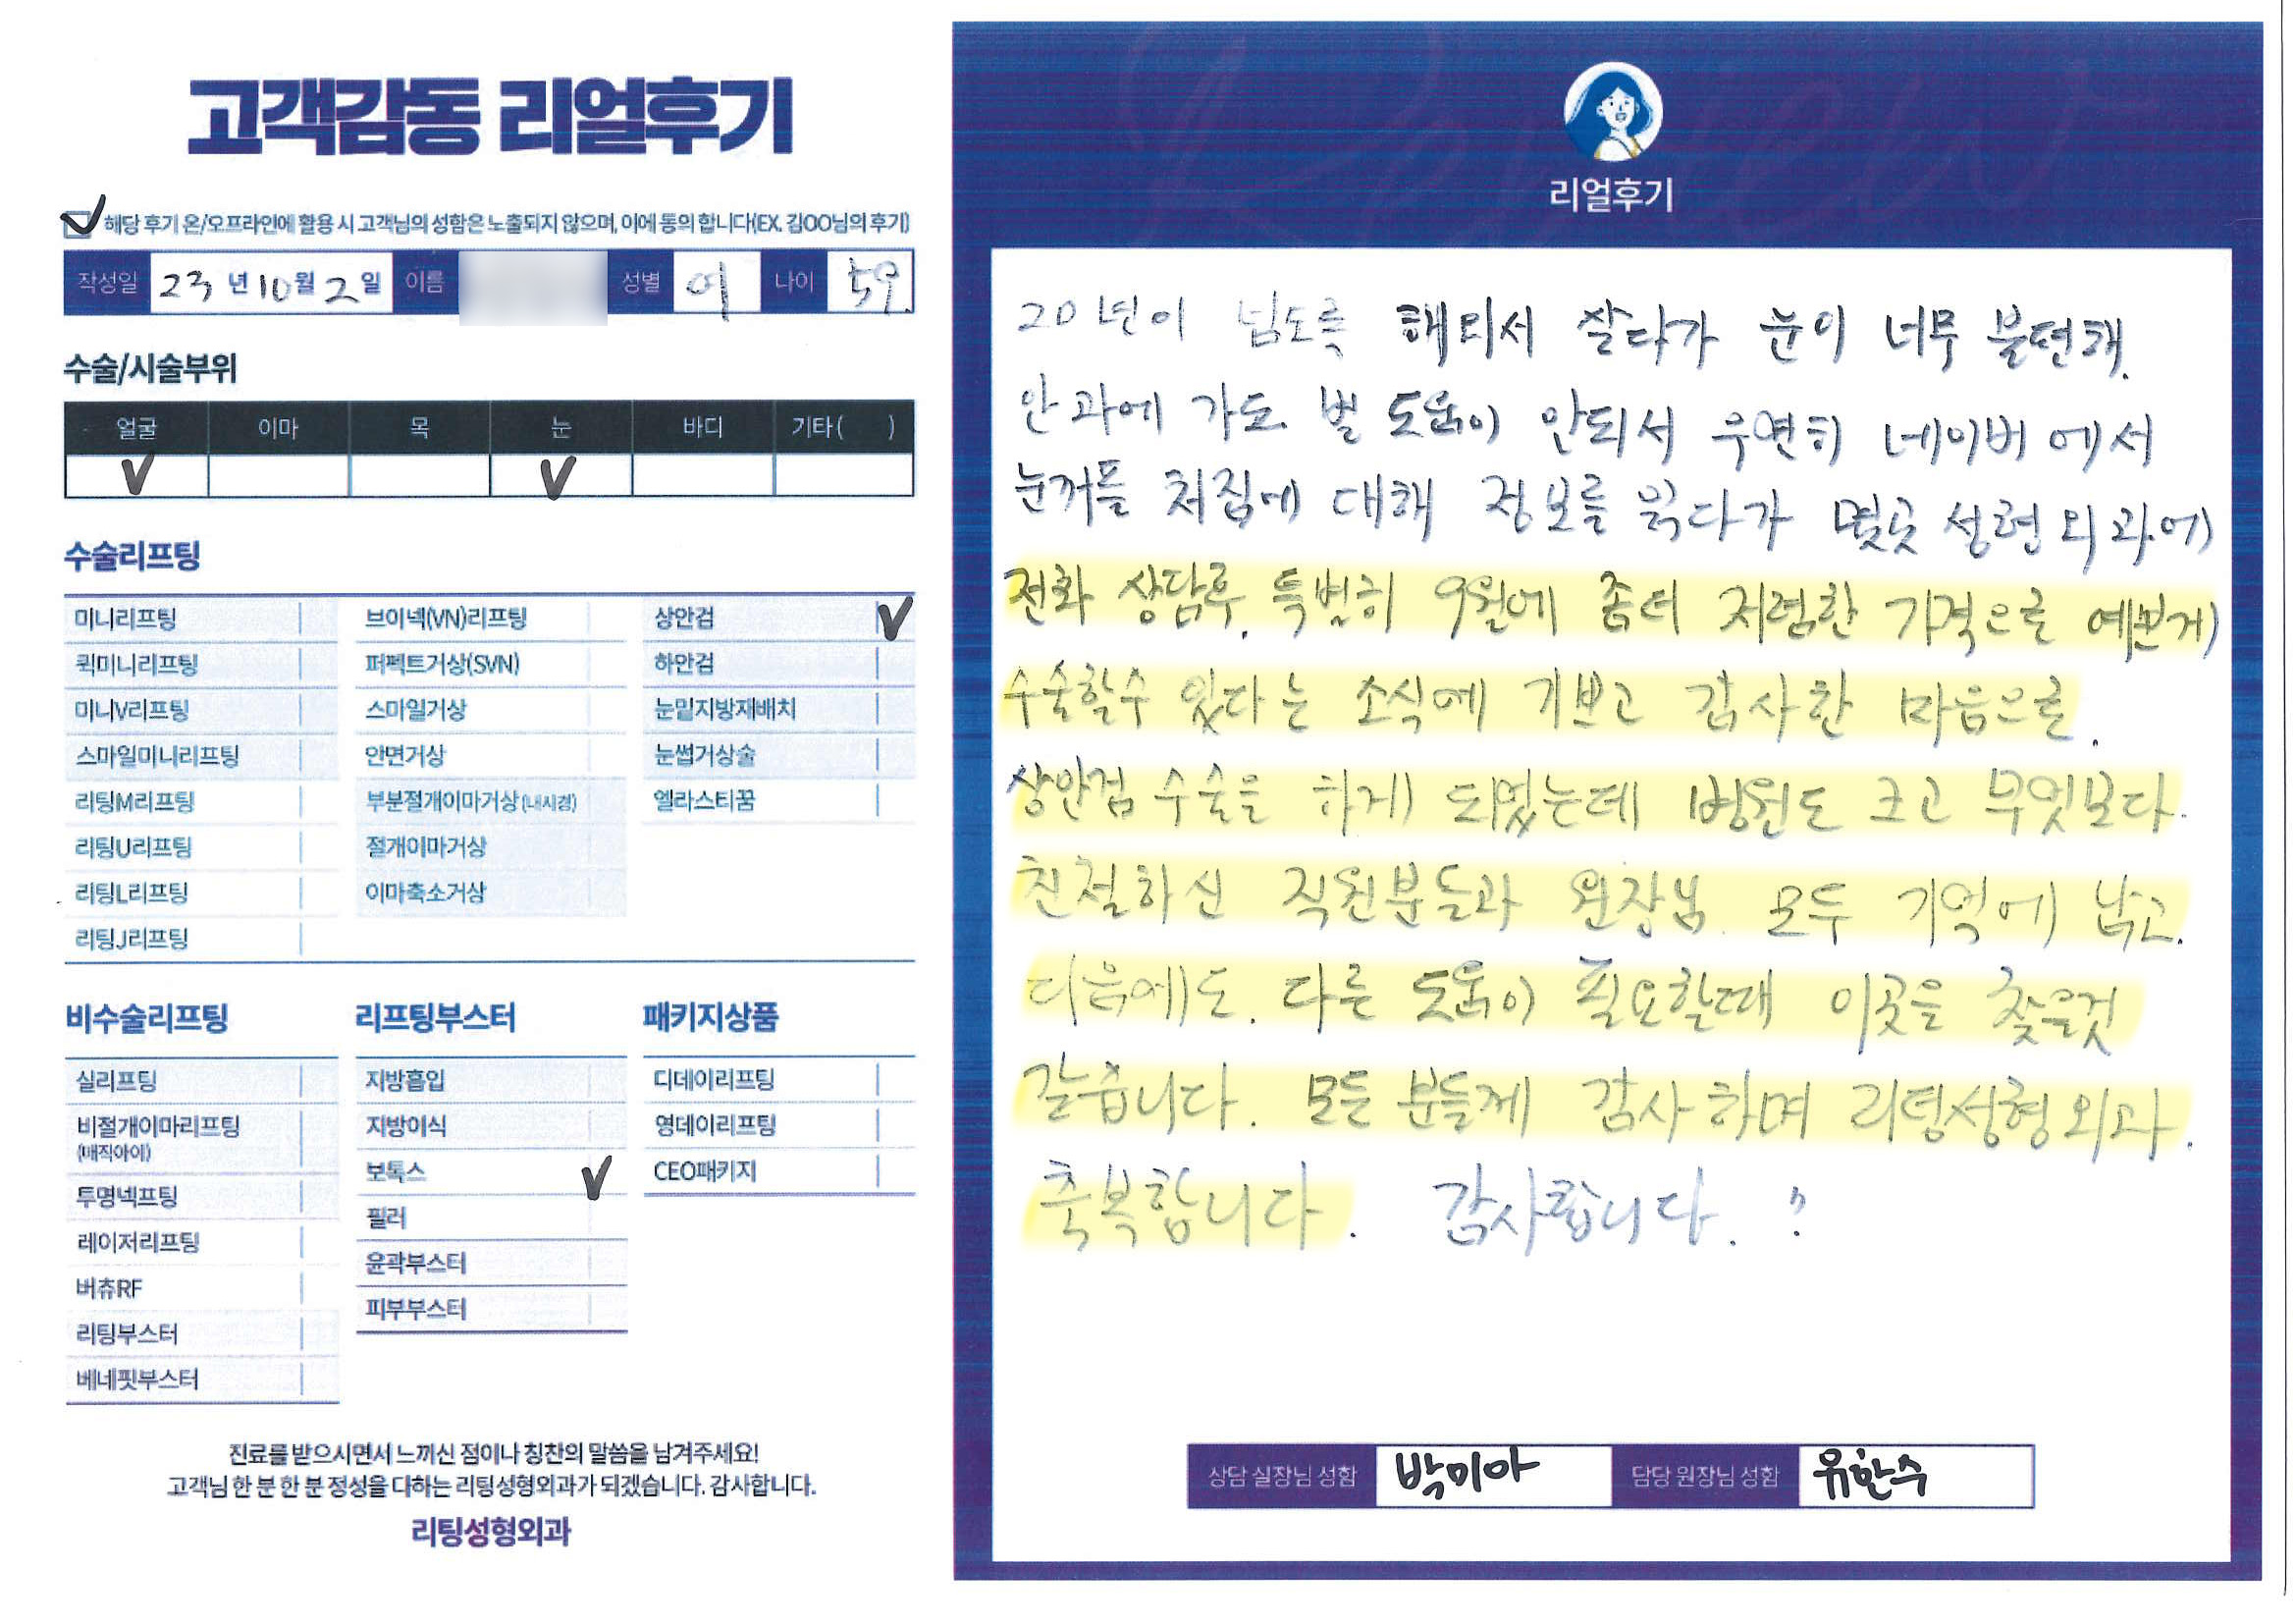 고객감동 리얼후기
해당 후기 온/오프라인에 활용 시 고객님의 성함은 노출되지 않으며, 이에 동의 합니다(EX. 김OO님의 후기)
작성일 23년 10월 2일 이름 성별 여 나이 59
수술/시술부위
얼굴 이마 목 눈 바디 기타( )
수술리프팅
미니리프팅 브이넥(VN)리프팅 상안검
퀵미니리프팅 퍼펙트거상(SVN) 하안검
미니V리프팅 스마일거상 눈밑지방재배치
스마일미니리프팅 안면거상 눈썹거상술
리팅M리프팅 부분절개이마거상(내시경) 엘라스티꿈
리팅U리프팅 절개이마거상
리팅L리프팅 이마축소거상
리팅J리프팅
비수술리프팅 리프팅부스터 패키지상품
실리프팅 지방흡입 디데이리프팅
비절개이마리프팅 지방이식 영데이리프팅
(매직아이)
보톡스 CEO패키지
투명넥프팅 필러
레이저리프팅 윤곽부스터
버츄RF 피부부스터
리팅부스터
베네핏부스터
진료를 받으시면서 느끼신 점이나 칭찬의 말씀을 남겨주세요!
고객님 한 분 한 분 정성을 다하는 리팅성형외과가 되겠습니다. 감사합니다.
리팅성형외과
리얼후기
20년이 넘도록 해외서 살다가 눈이 너무 불편해
안과에 가도 별 도움이 안되서 우연히 네이버에서
눈꺼풀 처짐에 대해 정보를 읽다가 몇곳 성형외과에
전화 상담후, 특별히 9월에 좀더 저렴한 가격으로 예쁘게
수술할수 있다는 소식에 기쁘고 감사한 마음으로
상안검 수술을 하게 되었는데 병원도 크고 무엇보다
친절하신 직원분들과 원장님 모두 기억에 남고
다음에도 다른 도움이 필요할때 이곳을 찾을것
같습니다. 모든 분들께 감사하며 리팅성형외과
축복합니다. 감사합니다.
상담 실장님 성함 박미아 담당 원장님 성함 유한수